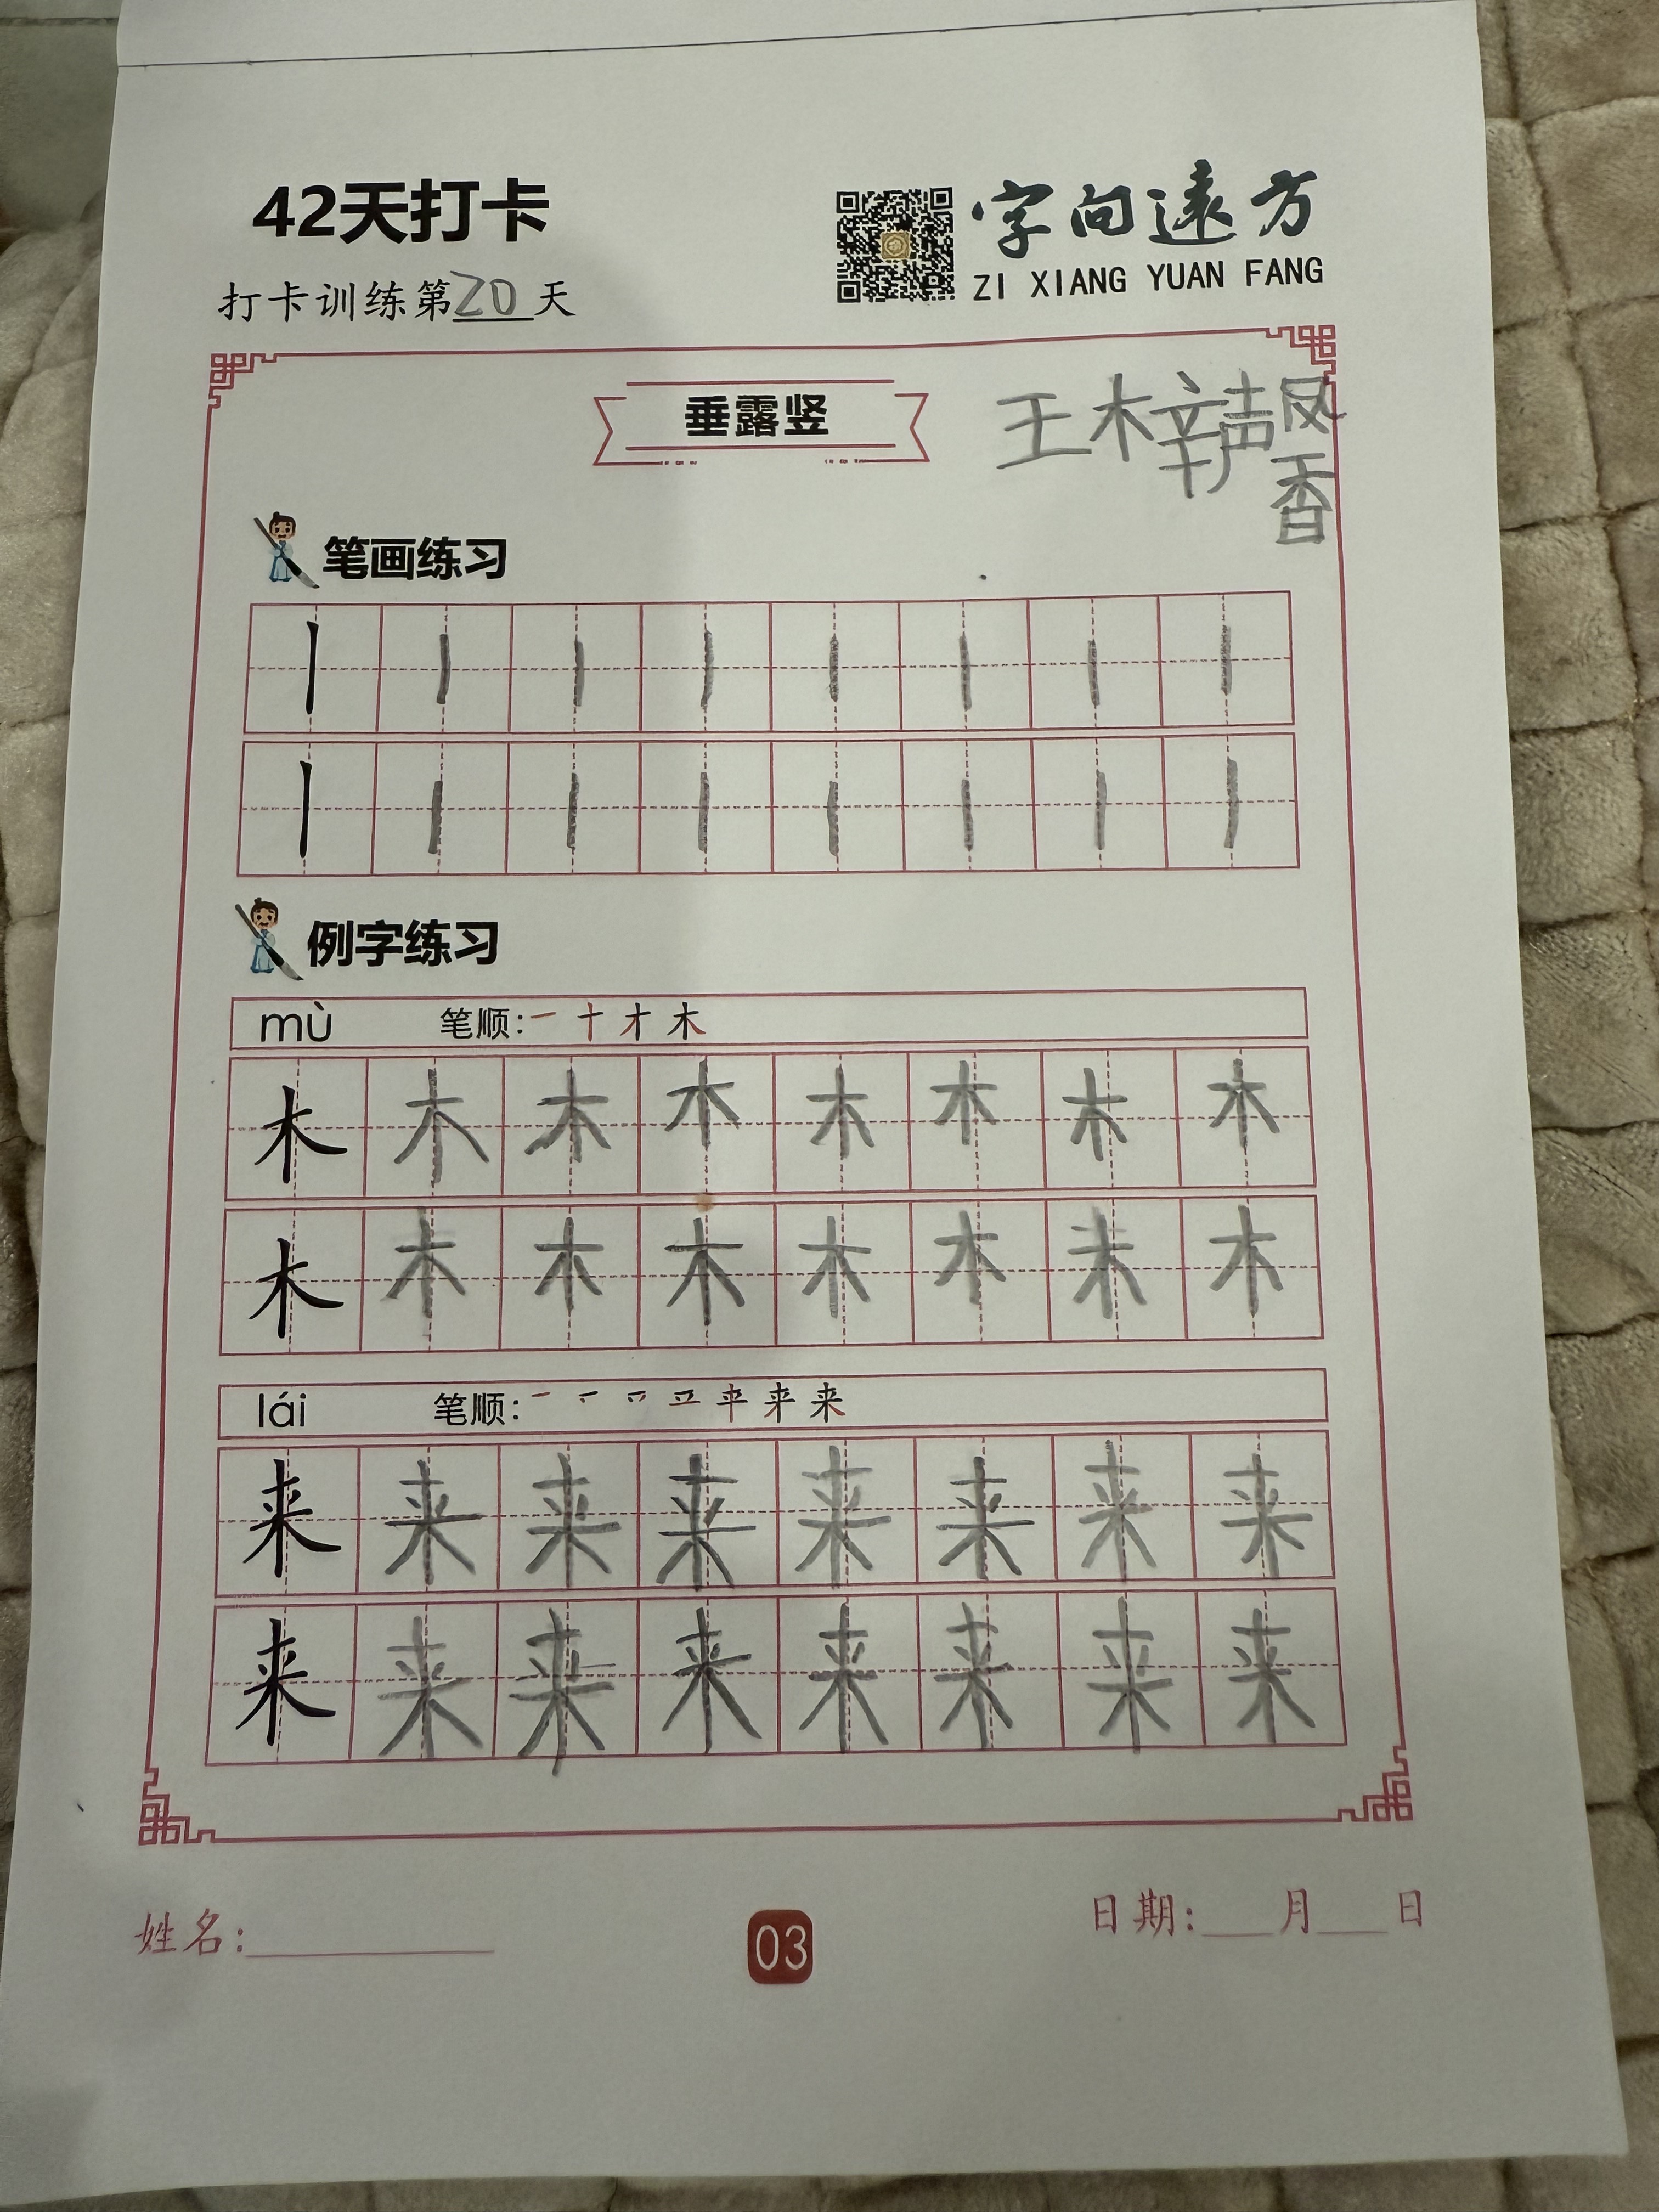 42天打卡
字向遠方
ZI XIANG YUAN FANG
打卡训练第20天
垂露竖
王木辛声凤
香
笔画练习
丨丨丨丨丨丨丨丨
丨丨丨丨丨丨丨丨
例字练习
mù 笔顺:一 十 才 木
木木木木木木木木
木木木木木木木木
lái 笔顺: 来
来来来来来来来来
来来来来来来来来
姓名:
03
日期: 月 日